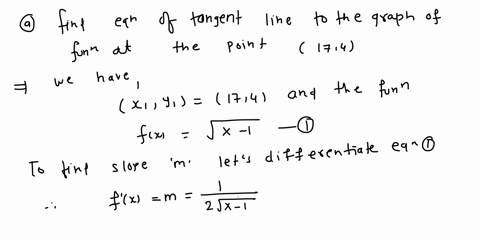 ⓐ find eqn of tangent line to the graph of
funn at the point (17,4)
⇒ we have,
(x₁, y₁) = (17,4) and the funn
f(x) = √(x-1) —①
To find slope 'm' let's differentiate eqn ①
∴ f'(x) = m = 1/(2√(x-1))